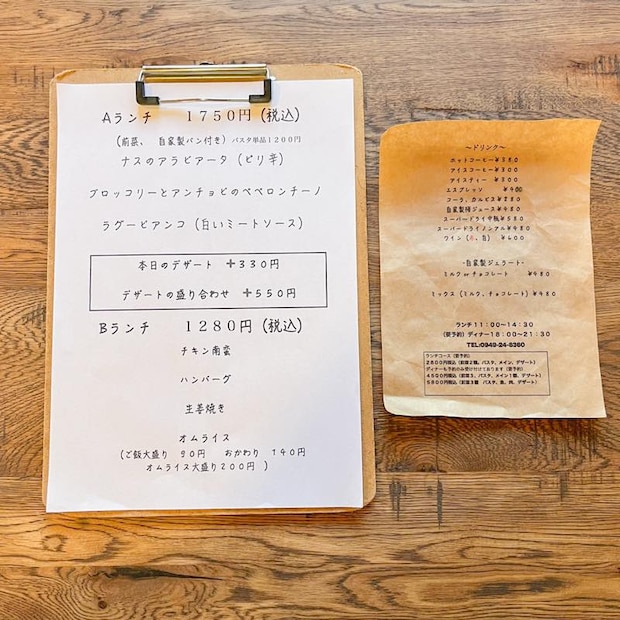 Aランチ 1750円(税込)
(前菜、自家製パン付き) パスタ単品1200円
ナスのアラビアータ(ピリ辛)
ブロッコリーとアンチョビのペペロンチーノ
ラグービアンコ(白いミートソース)
本日のデザート +330円
デザートの盛り合わせ +550円
Bランチ 1280円(税込)
チキン南蛮
ハンバーグ
生姜焼き
オムライス
(ご飯大盛り 90円 おかわり 140円
オムライス大盛り200円 )
~ドリンク~
ホットコーヒー¥380
アイスコーヒー¥300
アイスティー ¥300
エスプレッソ ¥400
コーラ、カルピス¥380
自家製梅ジュース¥480
スーパードライ中瓶¥580
スーパードライノンアル¥480
ワイン(赤、白) ¥600
-自家製ジェラート-
ミルク or チョコレート ¥480
ミックス(ミルク、チョコレート)¥480
ランチ11:00~14:30
(要予約)ディナー18:00~21:30
TEL:0949-24-6360
ランチコース(要予約)
2800円税込(前菜2種、パスタ、メイン、デザート)
ディナーも予約のみ受け付けております(要予約)
4500円税込(前菜3、パスタ、メイン1種、デザート)
5800円税込(前菜3種 パスタ、魚、肉、デザート)